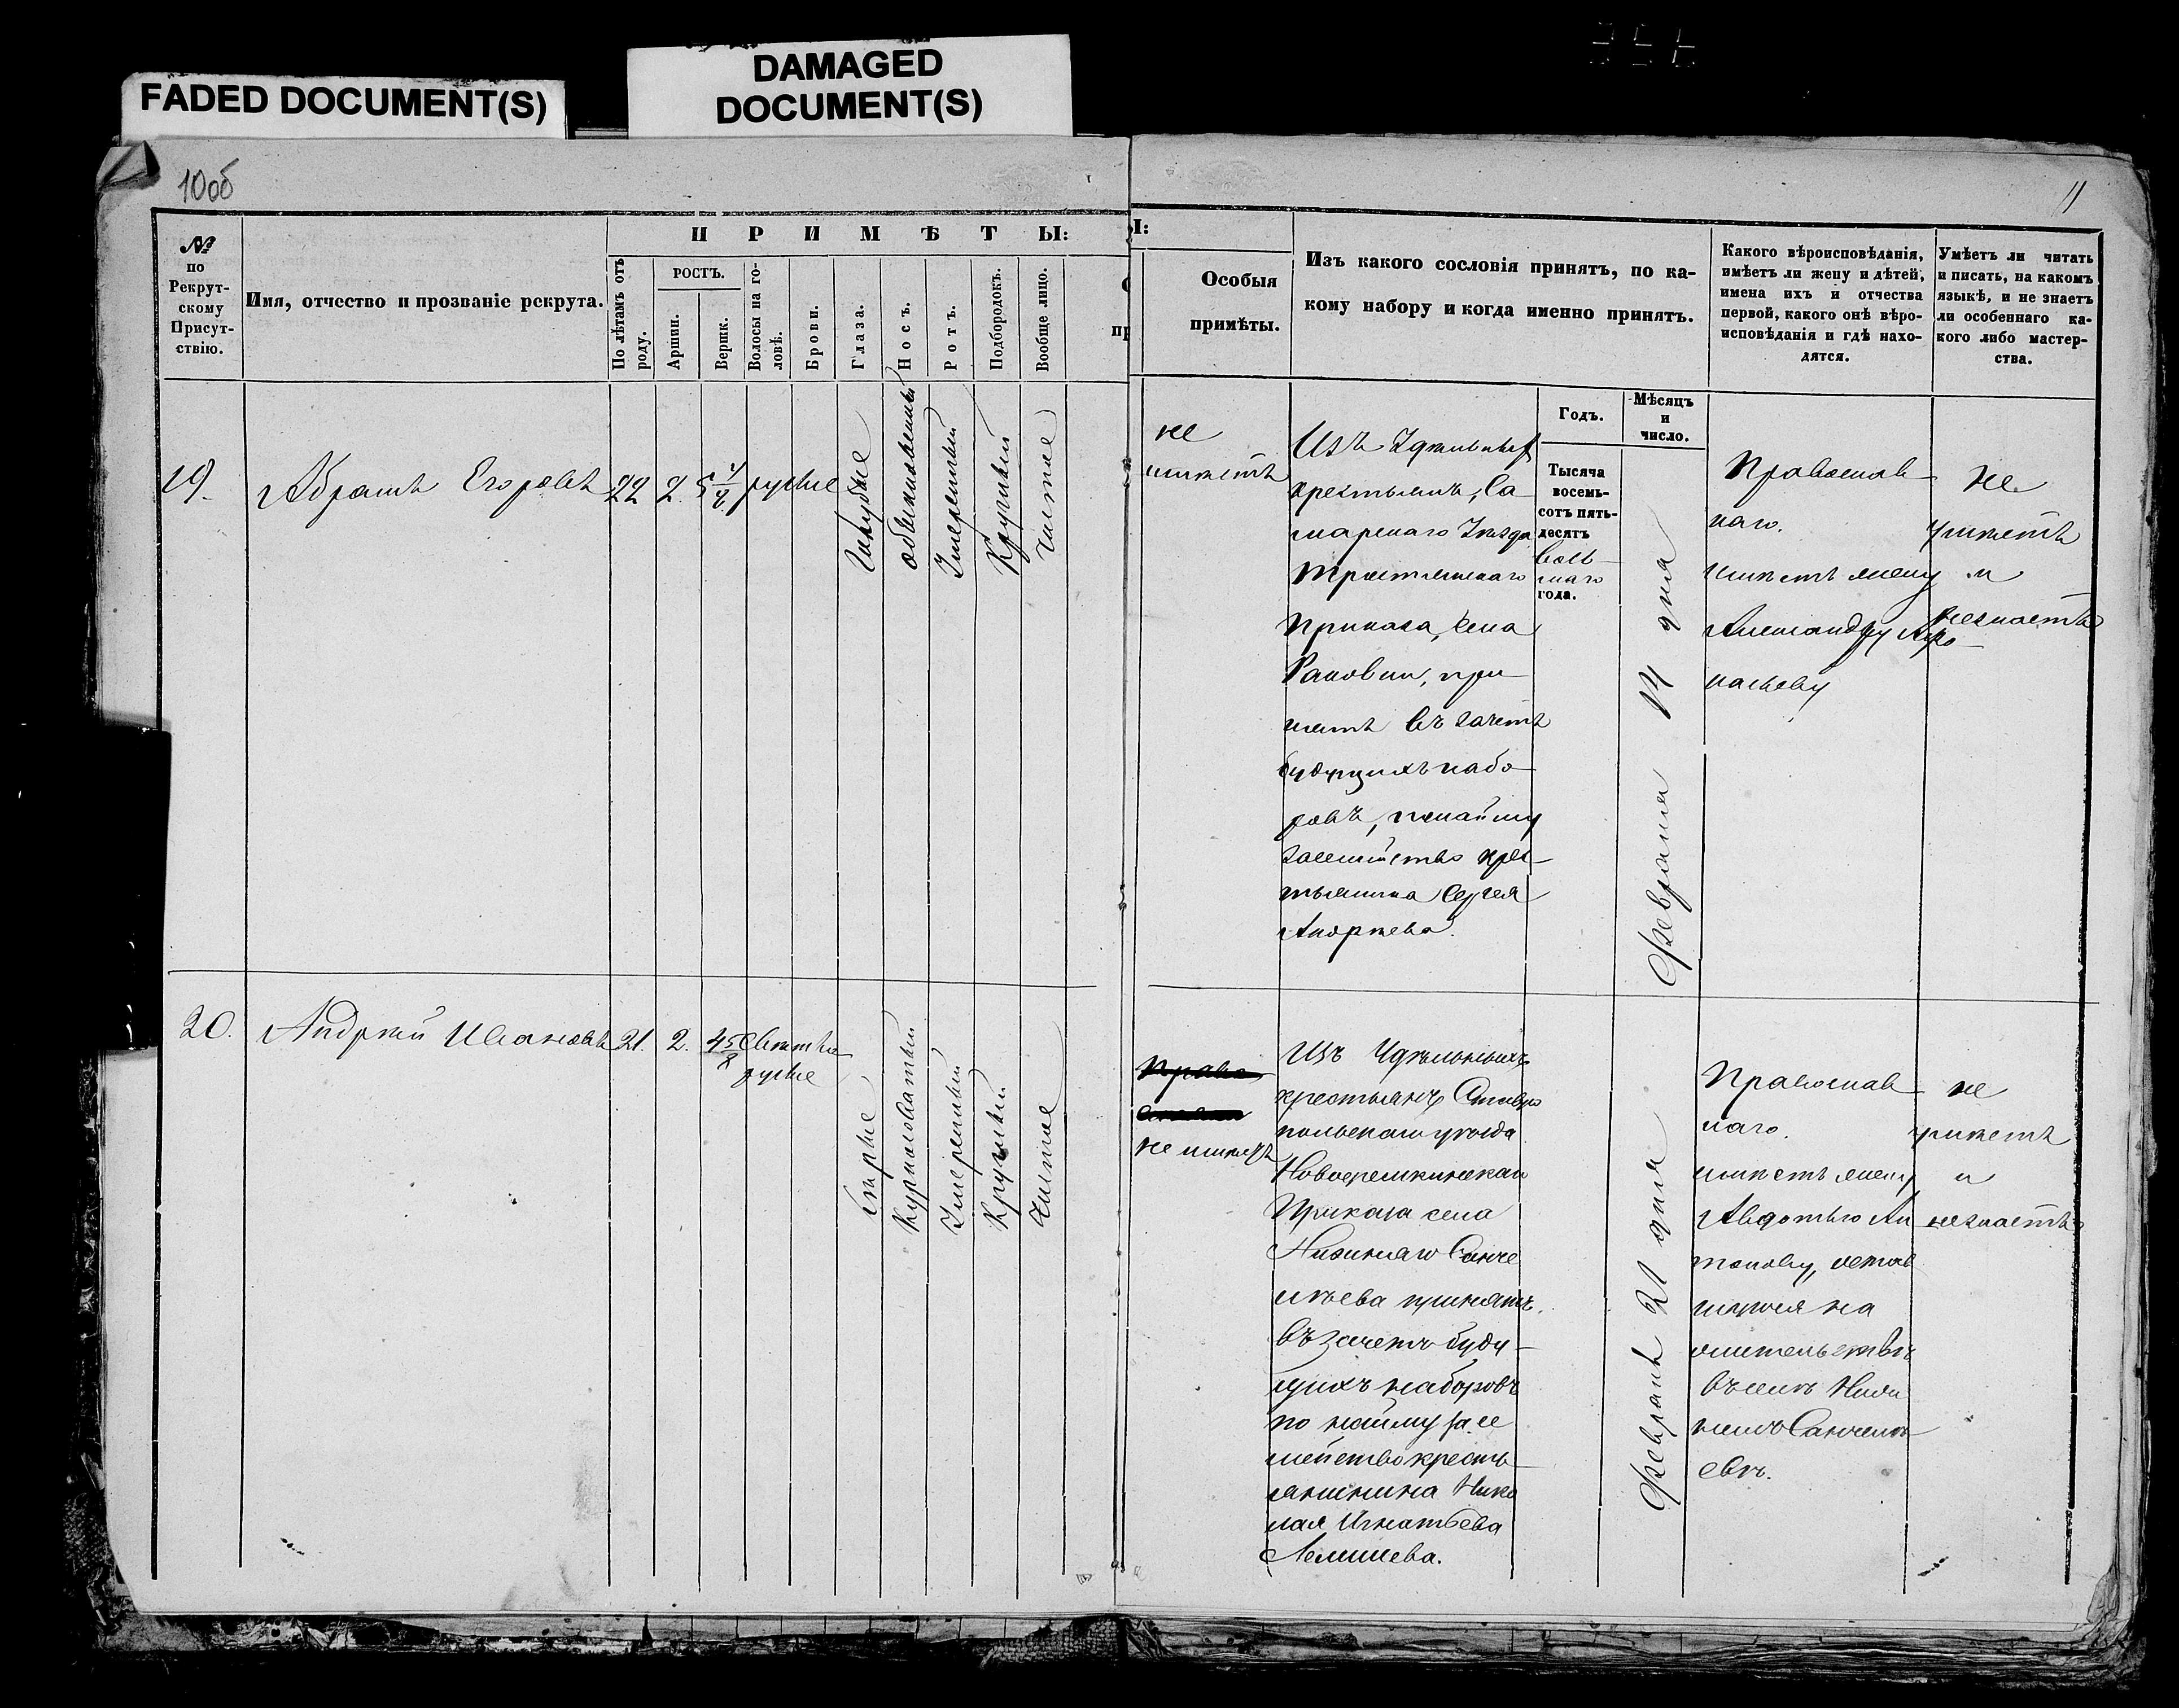 FADED DOCUMENT(S)
DAMAGED
DOCUMENT(S)
10об
11
№
по
Рекрут-
скому
Присут-
ствію.
Имя, отчество и прозваніе рекрута.
ПРИМѢТЫ:
По лѣтамъ отъ
роду.
РОСТЪ.
Аршин.
Вершк.
Волосы на го-
ловѣ.
Брови.
Глаза.
Носъ.
Ротъ.
Подбородокъ.
Вообще лицо.
Особыя
примѣты.
Изъ какого сословія принятъ, по ка-
кому набору и когда именно принятъ.
Какого вѣроисповѣданія,
имѣетъ ли жену и дѣтей,
имена ихъ и отчества
первой, какого онѣ вѣро-
исповѣданія и гдѣ нахо-
дятся.
Умѣетъ ли читать
и писать, на какомъ
языкѣ, и не знаетъ
ли особеннаго ка-
кого либо мастер-
ства.
Годъ.
Мѣсяцъ
и
число.
19.
Абрамъ Егоровъ
22
2
5 1/2
русые
Голубые
обыкновенный
Умеренный
Круглый
чистое
не
имѣетъ
Изъ Удѣльныхъ
крестьянъ, Са
марскаго Уѣзда
Тростянскаго
Приказа, села
Раковки, при
нятъ въ зачетъ
будущихъ набо-
ровъ, по найму
за семейство крес-
тьянина Сергея
Андреева.
Тысяча
восемь-
сотъ пять-
десятъ
вось-
маго
года.
Февраля 14 дня
Православ
наго.
имѣетъ жену
Александру
не
умѣетъ
и
незнаетъ
20.
Андрѣй Ивановъ
21.
2.
4 5/8
Светло
русые
Сѣрые
Курносоватый
Умеренный
Круглый
Чистое
не имѣетъ
Изъ Удѣльныхъ
крестьянъ Ставро
польскаго уѣзда
Новоеремкинскаго
Приказа села
Нижняго Санче
лѣева принятъ
въ зачетъ буду-
щихъ наборовъ
по найму за се
мейство кресть-
янинина Нико
лая Игнатьева
Февраля 21 дня
Православ
наго.
имѣетъ жену
Авдотью Ан
тонову, остав
шуюся на
жительствѣ
въ селѣ Ниж
немъ Санчелѣ
евѣ.
не
умѣетъ
и
незнаетъ